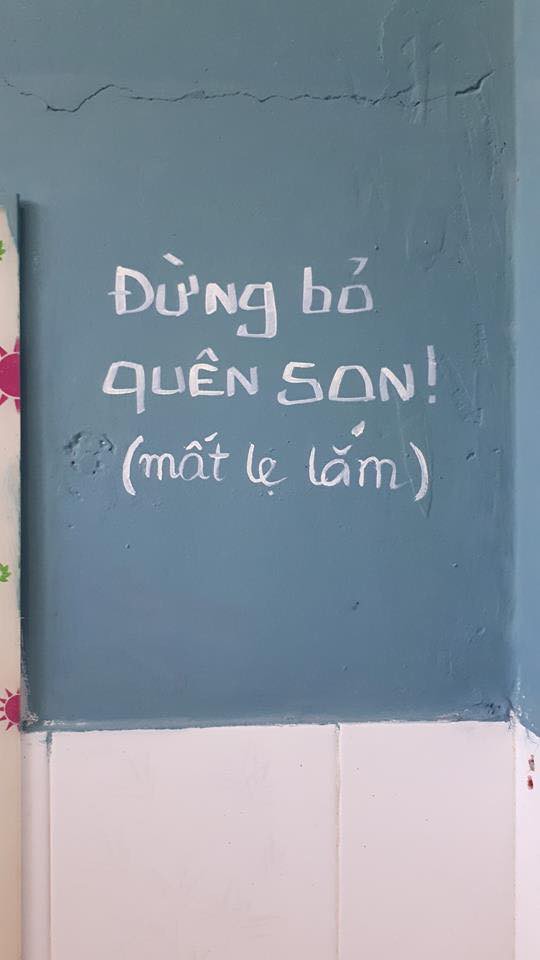 Đừng bỏ
quên son!
(mất lẹ lắm)